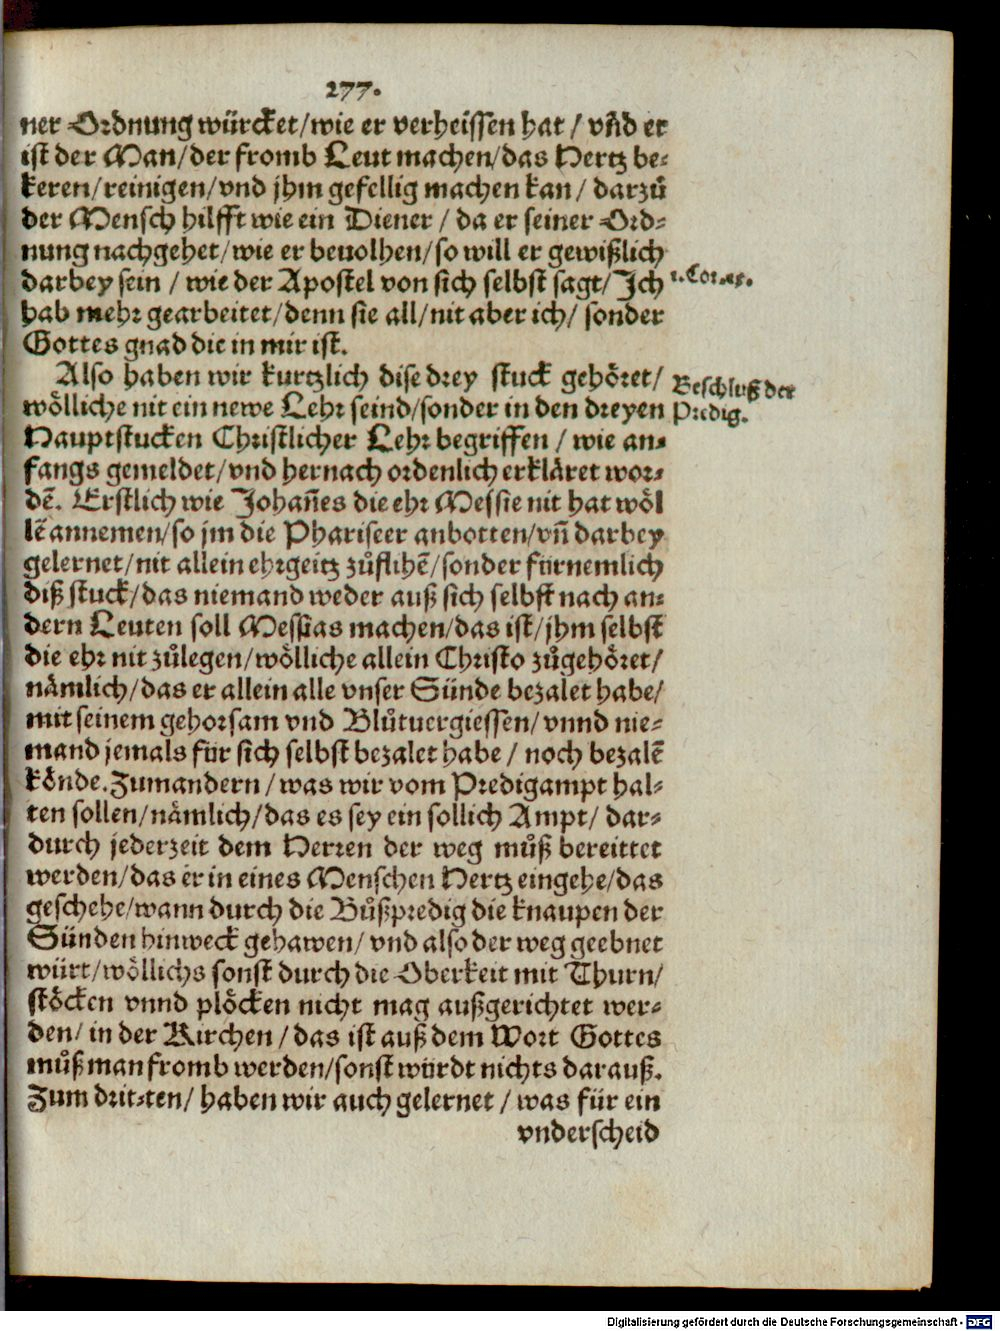 277.
ner Ordnung würcket/wie er verheissen hat / vñd er
ist der Man/der fromb Leut machen/das Hertz be-
keren/reinigen/vnd jhm gefellig machen kan/ darzů
der Mensch hilfft wie ein Diener / da er seiner Ord-
nung nachgehet/wie er beuolhen/so will er gewißlich
darbey sein / wie der Apostel von sich selbst sagt/ Ich
1. Cor. 15.
hab mehr gearbeitet/denn sie all/nit aber ich/ sonder
Gottes gnad die in mir ist.
Also haben wir kurtzlich dise drey stuck gehöret/
Beschluß der
wölliche nit ein newe Lehr seind/sonder in den dreyen
Predig.
Hauptstucken Christlicher Lehr begriffen / wie an-
fangs gemeldet/vnd hernach ordenlich erkläret wor-
dẽ. Erstlich wie Johañes die ehr Messie nit hat wöl
lẽ annemen/so jm die Phariseer anbotten/vñ darbey
gelernet/nit allein ehrgeitz zůflihẽ/sonder fürnemlich
diß stuck/das niemand weder auß sich selbst nach an-
dern Leuten soll Messias machen/das ist/jhm selbst
die ehr nit zůlegen/wölliche allein Christo zůgehöret/
nämlich/das er allein alle vnser Sünde bezalet habe/
mit seinem gehorsam vnd Blůtuergiessen/vnnd nie-
mand jemals für sich selbst bezalet habe / noch bezalẽ
könde. Zumandern / was wir vom Predigampt hal-
ten sollen/nämlich/das es sey ein sollich Ampt/ dar-
durch jederzeit dem Herren der weg můß bereittet
werden/das er in eines Menschen Hertz eingehe/das
geschehe/wann durch die Bůßpredig die knaupen der
Sünden hinweck gehawen/ vnd also der weg geebnet
würt/wöllichs sonst durch die Oberkeit mit Thurn/
stöcken vnnd plöcken nicht mag außgerichtet wer-
den/ in der Kirchen / das ist auß dem Wort Gottes
můß man fromb werden/sonst würdt nichts darauß.
Zum drit-ten/ haben wir auch gelernet / was für ein
vnderscheid
Digitalisierung gefördert durch die Deutsche Forschungsgemeinschaft - DFG